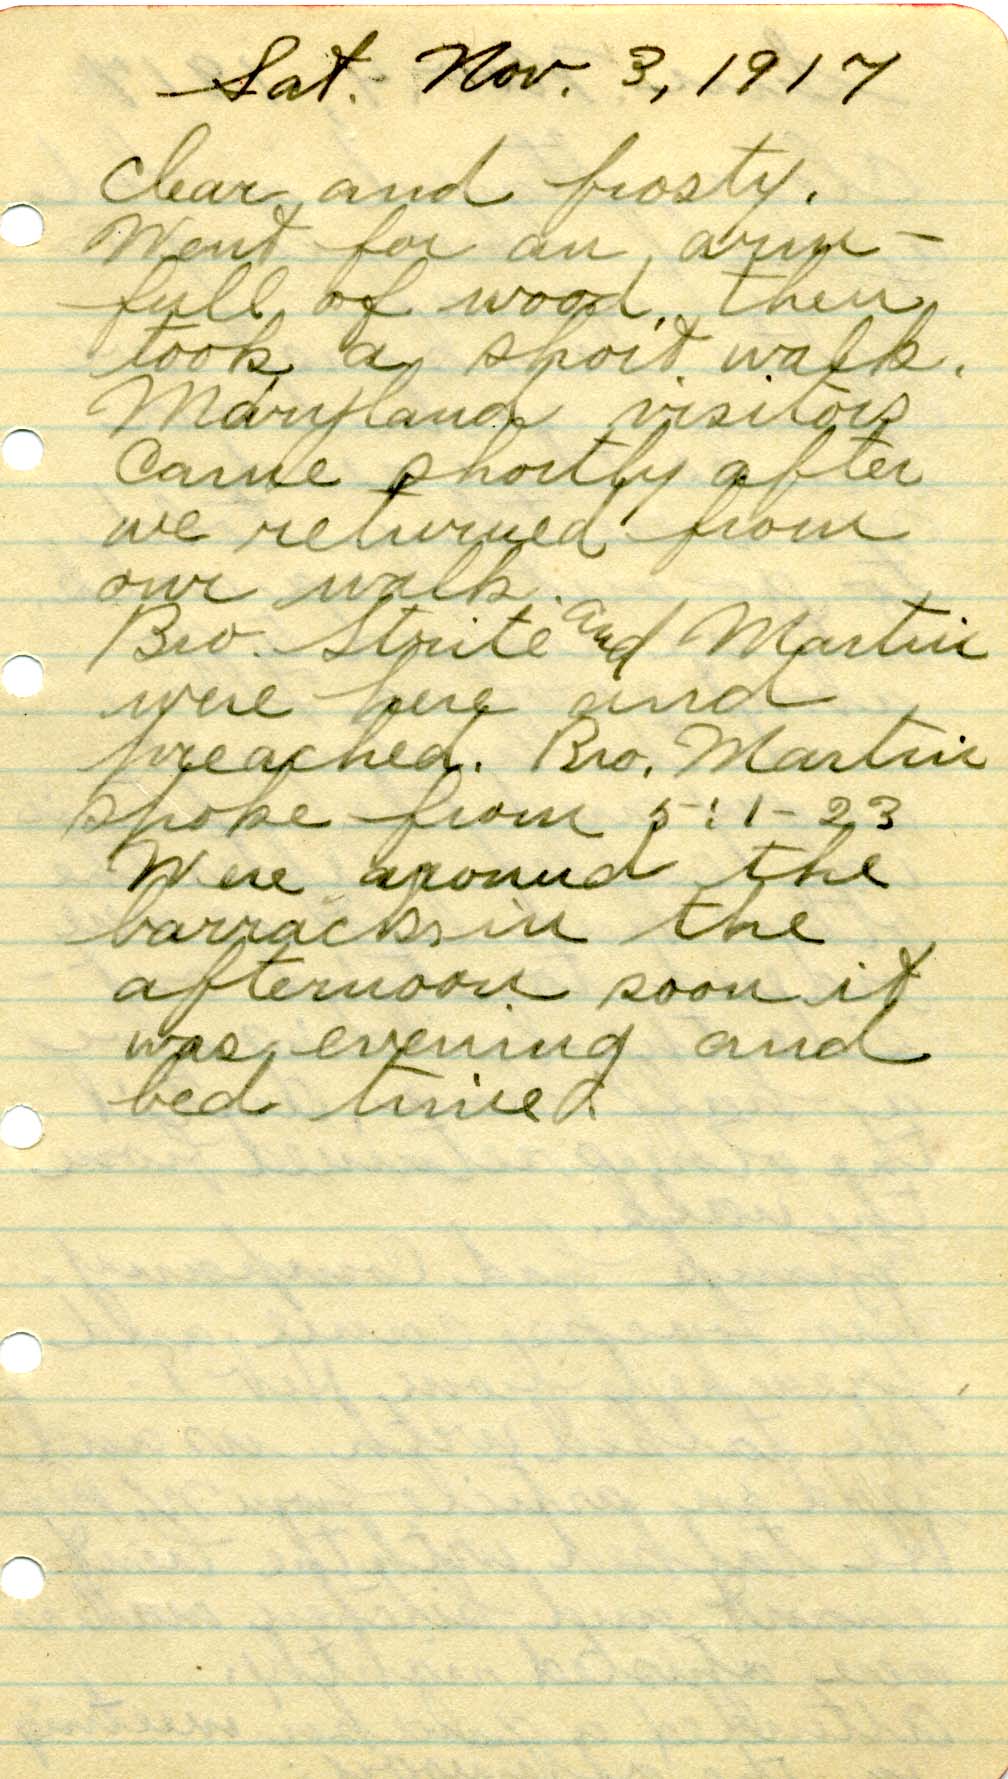 Sat. Nov. 3, 1917
Clear and frosty.
Went for an arm-
full of wood, then
took a short walk.
Maryland visitors
came shortly after
we returned from
our walk.
Bro. Strite and Martin
were here and
preached. Bro. Martin
spoke from 5:1-23
Were around the
barracks in the
afternoon soon it
was evening and
bed time.